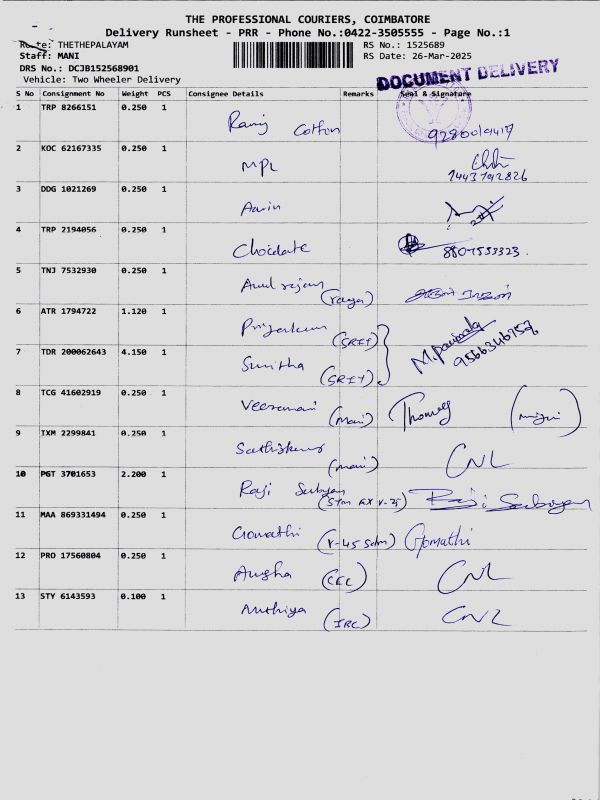 THE PROFESSIONAL COURIERS, COIMBATORE
Delivery Runsheet - PRR - Phone No.:0422-3505555 - Page No.:1
Route: THETHEPALAYAM RS No.: 1525689
Staff: MANI RS Date: 26-Mar-2025
DRS No.: DCJB152568901
DOCUMENT DELIVERY
Vehicle: Two Wheeler Delivery
S No Consignment No Weight PCS Consignee Details Remarks Seal & Signature
1 TRP 8266151 0.250 1 Ramj Cotton
2 KOC 62167335 0.250 1 MPL
3 DDG 1021269 0.250 1 Aarin
4 TRP 2194056 0.250 1 Chocolate 8807553323.
5 TNJ 7532930 0.250 1 Arul rajan
6 ATR 1794722 1.120 1 (SRIT)
7 TDR 200062643 4.150 1 Sunitha (SRIT) 9566346752
8 TCG 41602919 0.250 1 Veeramani (Mani) Thomas
9 IXM 2299841 0.250 1 Sathiskumar (Mani) CNL
10 PGT 3701653 2.200 1 Raji Subayan Raji Subayan
11 MAA 869331494 0.250 1 Gomathi Gomathi
12 PRO 17560804 0.250 1 Anusha CNL
13 STY 6143593 0.100 1 Nuthiya (IRC) CNL